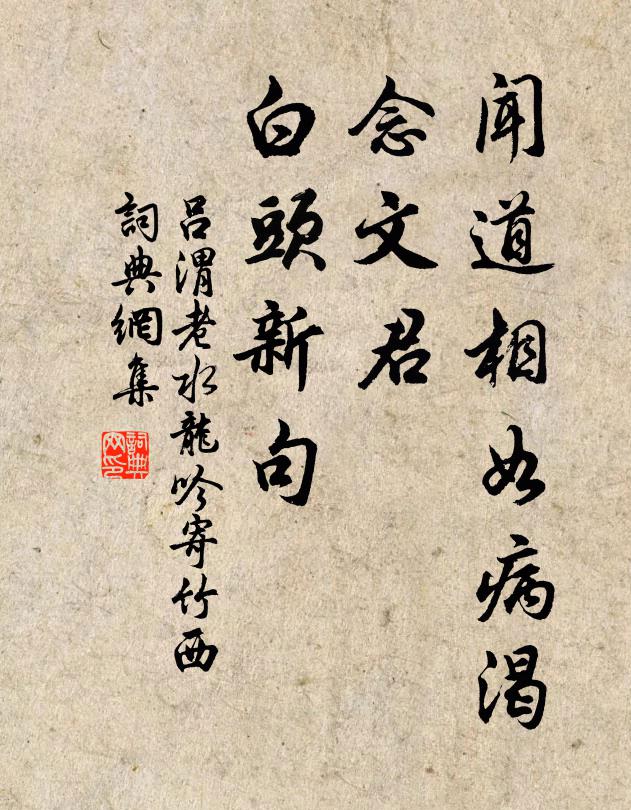 聞道相如病渴
念文君
白頭新句
呂渭老水龍吟寄竹西
詞典網集
詞典网印